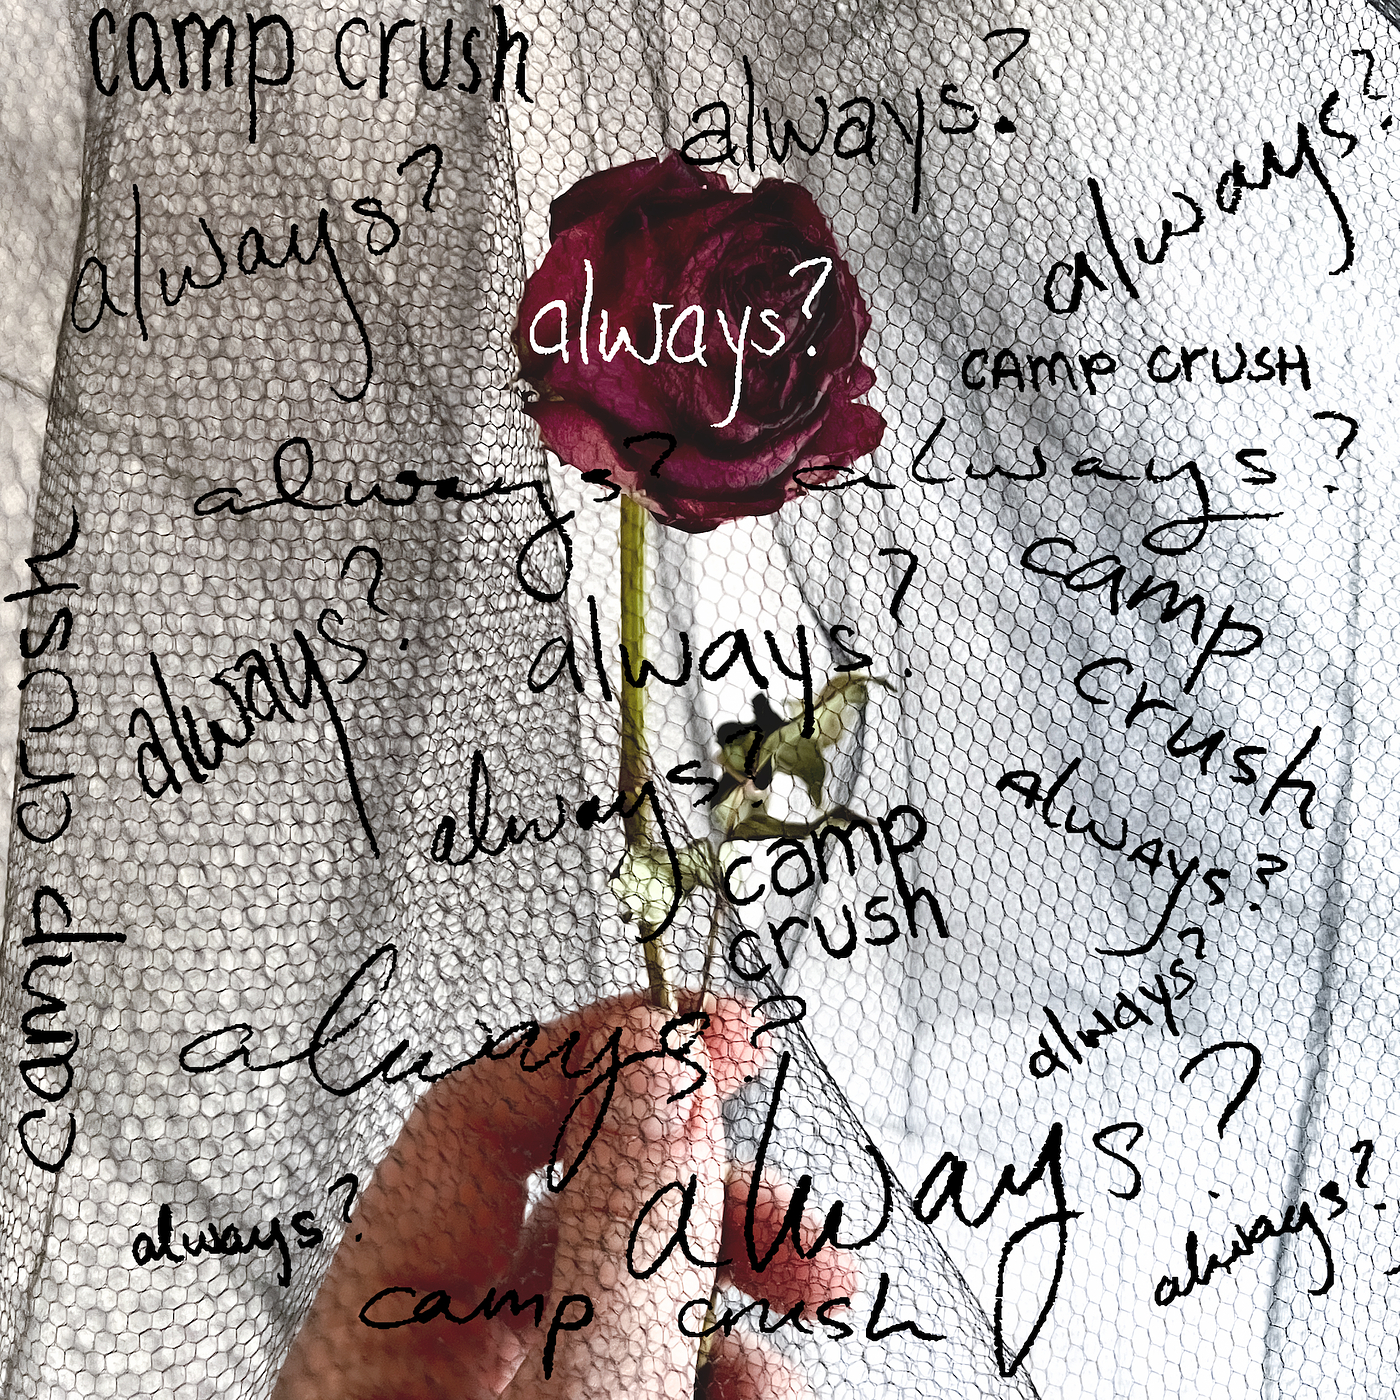 camp crush
always?
always?
always?
always?
CAMP CRUSH
always?
always?
camp crush
camp
crush
always?
always?
always?
always?
camp
crush
always?
always?
always?
always?
always?
camp crush